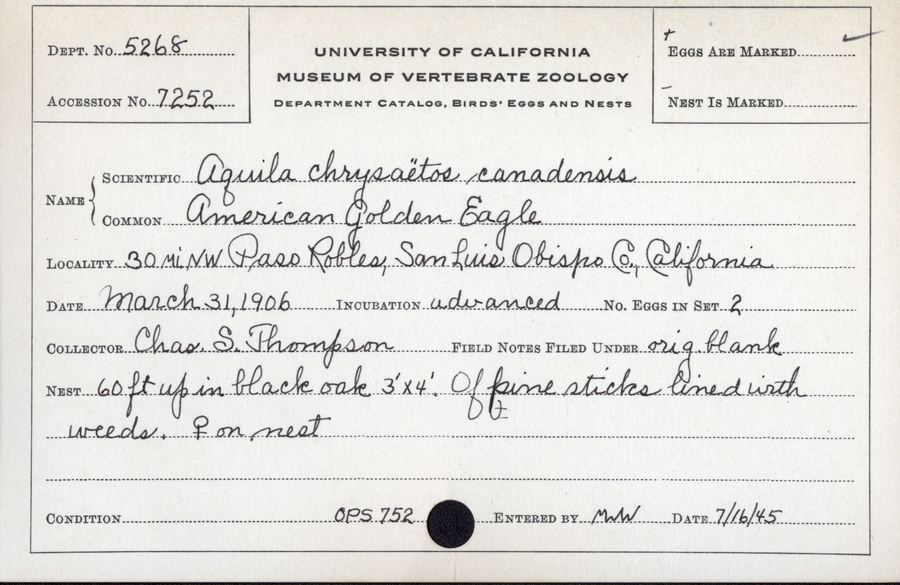 DEPT. NO. 5268
ACCESSION NO. 7252
UNIVERSITY OF CALIFORNIA
MUSEUM OF VERTEBRATE ZOOLOGY
DEPARTMENT CATALOG, BIRDS' EGGS AND NESTS
+ EGGS ARE MARKED ✓
- NEST IS MARKED
NAME { SCIENTIFIC Aquila chrysaëtos canadensis
COMMON American Golden Eagle
LOCALITY 30 mi NW Paso Robles, San Luis Obispo Co., California
DATE March 31, 1906 INCUBATION advanced NO. EGGS IN SET 2
COLLECTOR Chas. S. Thompson FIELD NOTES FILED UNDER orig. blank
NEST 60 ft up in black oak 3'x4'. Of pine sticks lined with
weeds. ♀ on nest
CONDITION OPS 752 ENTERED BY MWW DATE 7/16/45